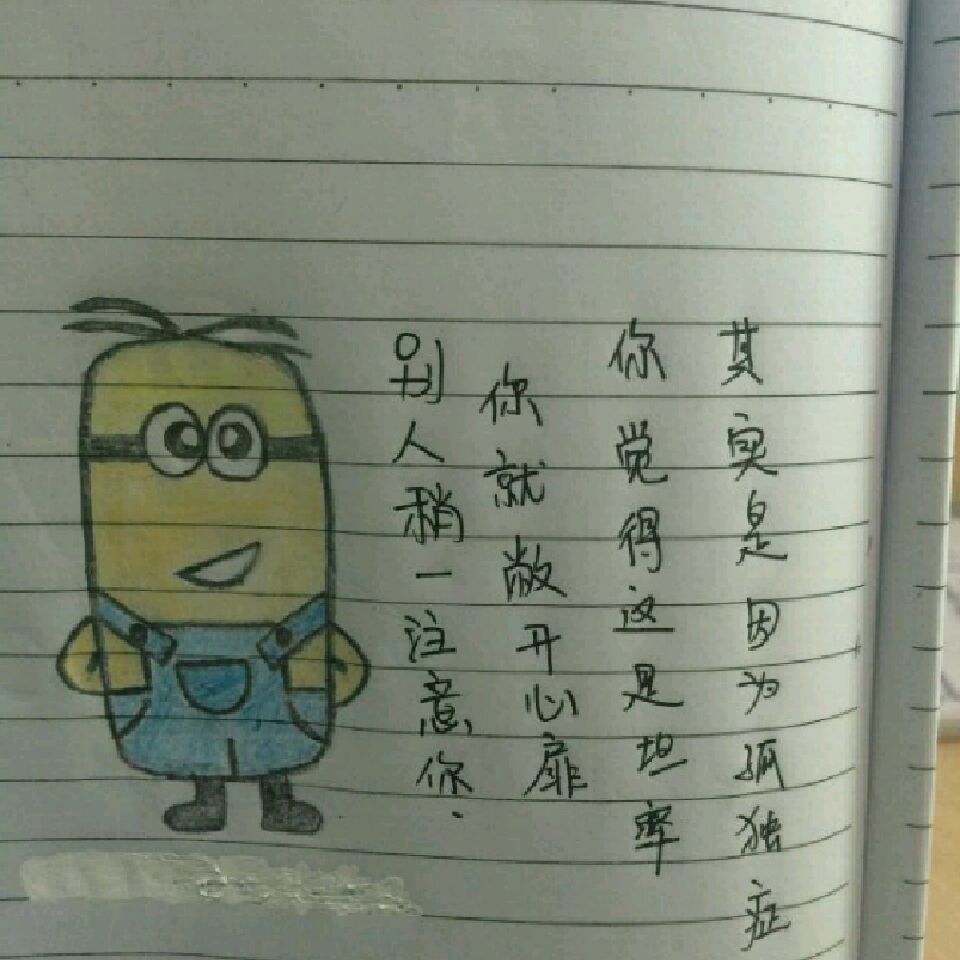 别人稍一注意你.
你就敞开心扉
你觉得这是坦率
其实是因为孤独症